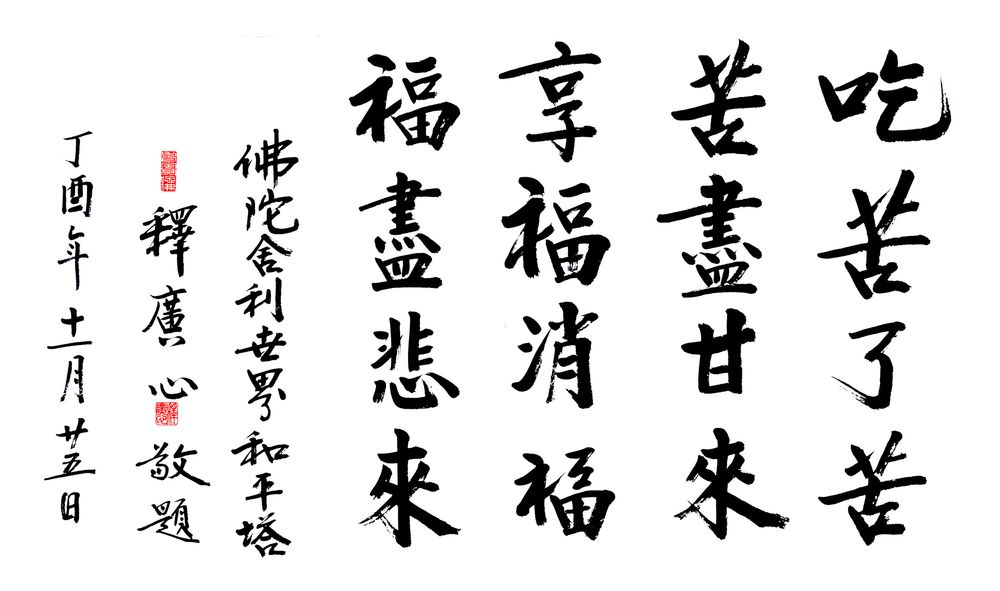 吃苦了苦
苦盡甘來
享福消福
福盡悲來
佛陀舍利世界和平塔
釋廣心敬題
丁酉年十一月廿五日